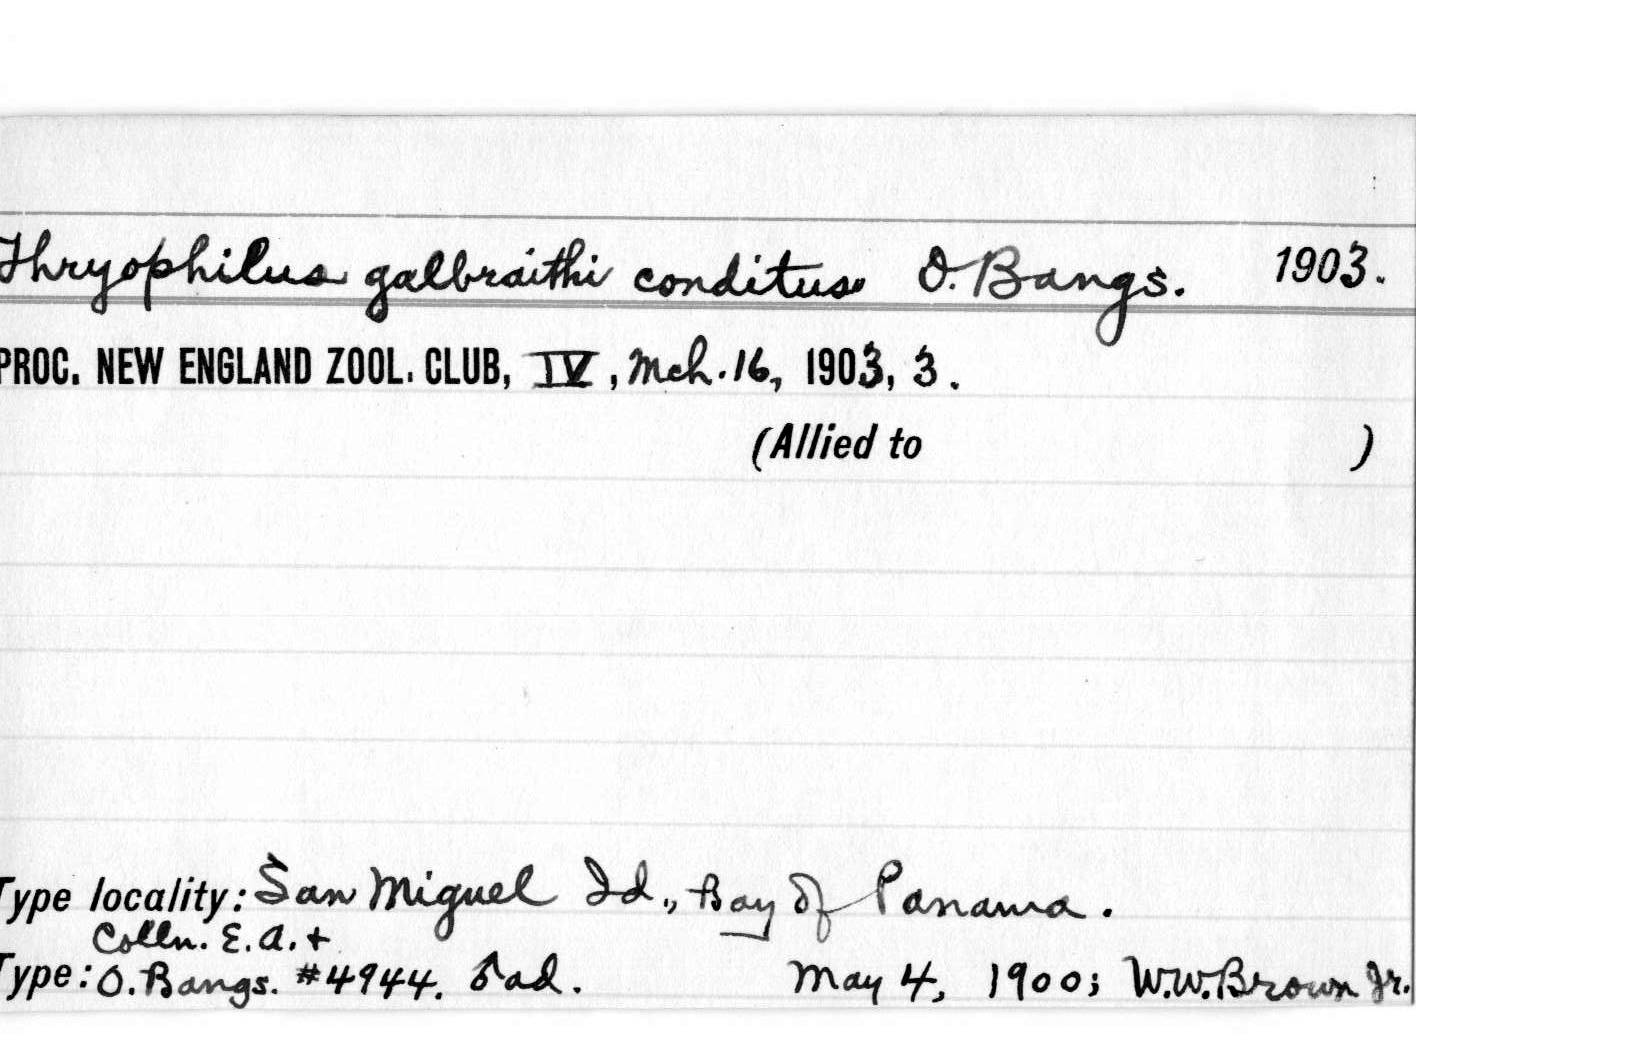 Thryophilus galbraithi conditus O. Bangs. 1903.
PROC. NEW ENGLAND ZOOL. CLUB, IV, Mch. 16, 1903, 3.
(Allied to )
Type locality: San Miguel Id., Bay of Panama.
Colln. E. A. +
Type: O. Bangs. #4944. ♂ ad. May 4, 1900; W.W. Brown Jr.